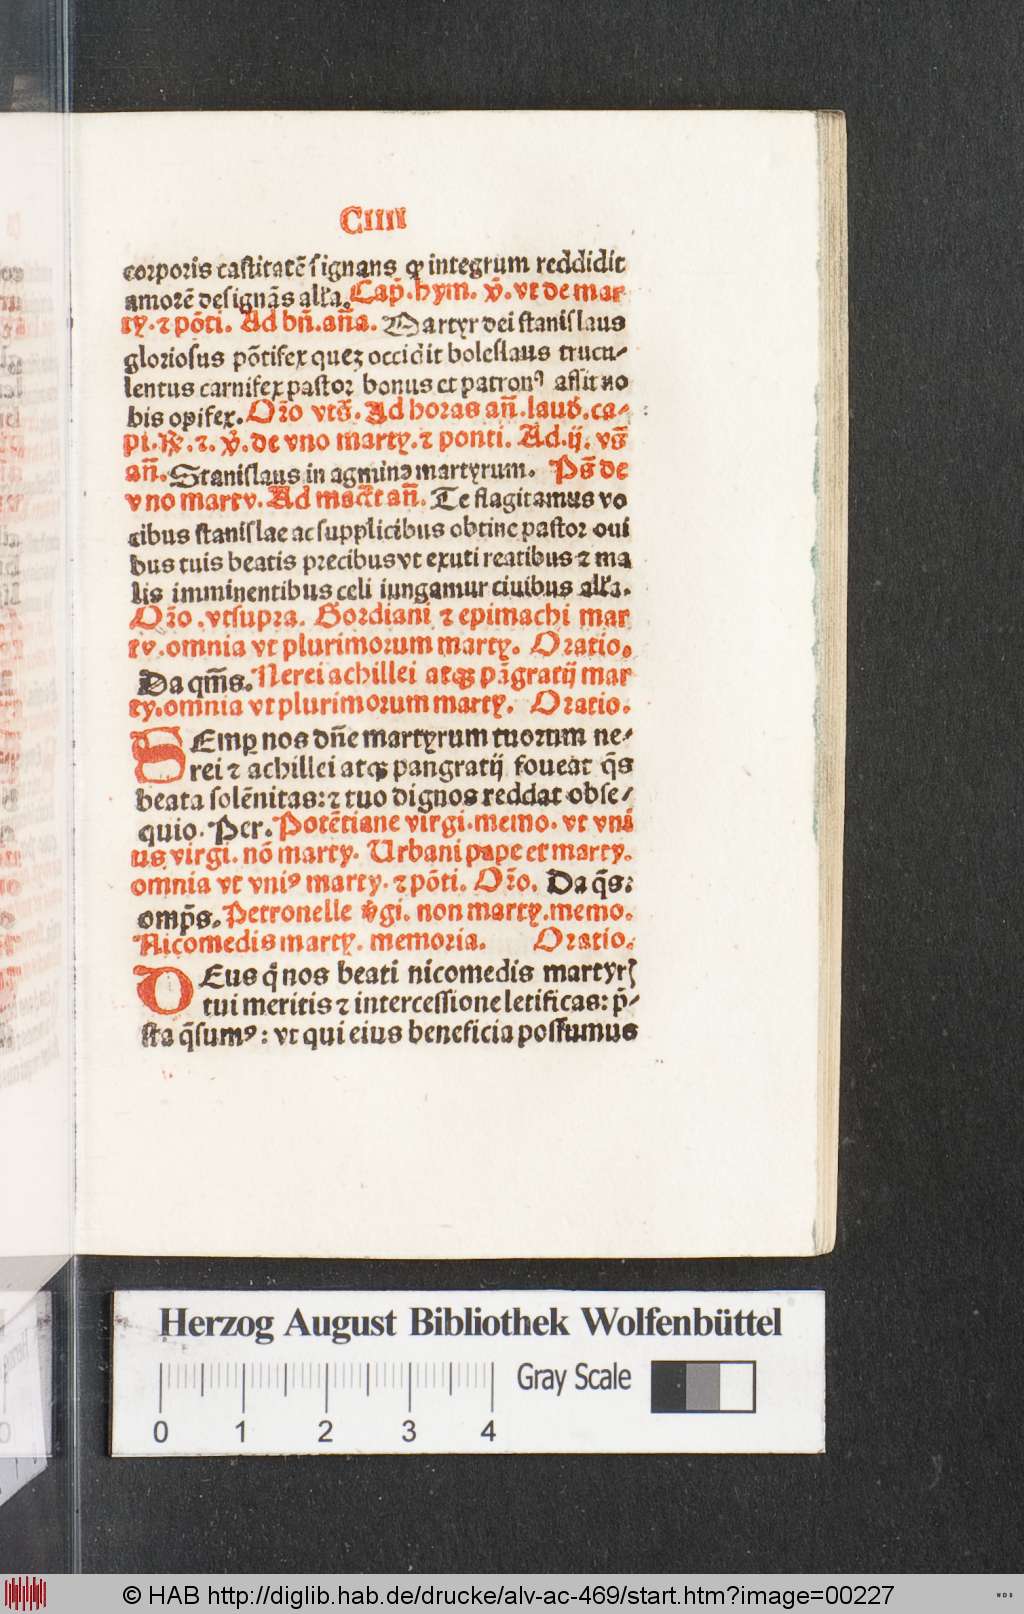 CIIII
corporis castitatē signans ꝙ integrum reddidit
amorē designās alľa. Cap̄. hym. v̄. vt de mar
ty. ⁊ pōti. Ad bn̄. an̄a. Martyr dei stanislaus
gloriosus pōtifex quez occidit boleslaus trucu⸗
lentus carnifex pastor bonus et patronꝰ assit no
bis opifex. Or̄o vts̄. Ad horas an̄. laud̄. ca⸗
pi. R̄. ⁊. v̄. de vno marty. ⁊ ponti. Ad. ij. vs̄
an̄. Stanislaus in agmine martyrum. Ps̄ de
vno marty. Ad mac̄t an̄. Te flagitamus vo
cibus stanislae ac supplicibus obtine pastor oui
bus tuis beatis precibus vt exuti reatibus ⁊ ma
lis imminentibus celi iungamur ciuibus alľa.
Or̄o. vtsupra. Gordiani ⁊ epimachi mar
ty. omnia vt plurimorum marty. Oratio.
Da qm̄s. Nerei achillei atqꝫ pāgratij mar
ty. omnia vt plurimorum marty. Oratio.
SEmꝑ nos dn̄e martyrum tuorum ne⸗
rei ⁊ achillei atqꝫ pangratij foueat q̄s
beata solēnitas: ⁊ tuo dignos reddat obse⸗
quio. Per. Potētiane virgi. memo. vt vni
us virgi. nō marty. Urbani pape et marty.
omnia vt vniꝰ marty. ⁊ pōti. Or̄o. Da q̄s:
omp̄s. Petronelle v̄gi. non marty. memo.
Nicomedis marty. memoria. Oratio.
DEus q̄ nos beati nicomedis martyrꝭ
tui meritis ⁊ intercessione letificas: p̄⸗
sta q̄sumꝰ: vt qui eius beneficia possumus
Herzog August Bibliothek Wolfenbüttel
Gray Scale
0 1 2 3 4
© HAB http://diglib.hab.de/drucke/alv-ac-469/start.htm?image=00227